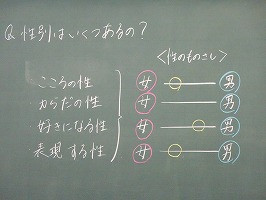 Q 性別はいくつあるの？
＜性のものさし＞
こころの性 女 男
からだの性 女 男
好きになる性 女 男
表現する性 女 男